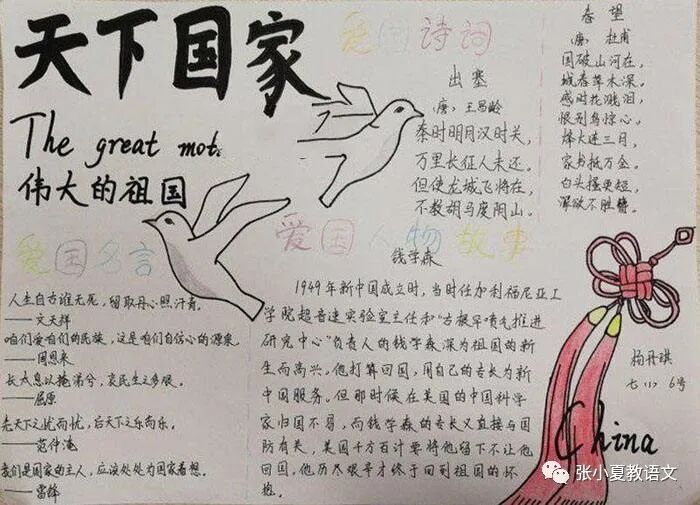 天下国家
The great mot
伟大的祖国
爱国诗词
出塞
(唐) 王昌龄
秦时明月汉时关,
万里长征人未还。
但使龙城飞将在,
不教胡马度阴山。
春望
(唐) 杜甫
国破山河在,
城春草木深。
感时花溅泪,
恨别鸟惊心。
烽火连三月,
家书抵万金。
白头搔更短,
浑欲不胜簪。
爱国名言
人生自古谁无死,留取丹心照汗青。
——文天祥
咱们爱咱们的民族,这是咱们自信心的源泉。
——周恩来
长太息以掩涕兮,哀民生之多艰。
——屈原
先天下之忧而忧,后天下之乐而乐。
——范仲淹
我们是国家的主人,应该处处为国家着想。
——雷锋
爱国人物故事
钱学森
1949年新中国成立时,当时任加利福尼亚工
学院超音速实验室主任和“古根罕喷气推进
研究中心”负责人的钱学森深为祖国的新
生而高兴。他打算回国,用自己的专长为新
中国服务。但那时候在美国的中国科学
家归国不易,而钱学森的专长又直接与国
防有关,美国千方百计要将他留下不让他
回国,他历尽艰辛才终于回到祖国的怀
抱。
杨丹琪
七(1) 6号
China
张小夏教语文